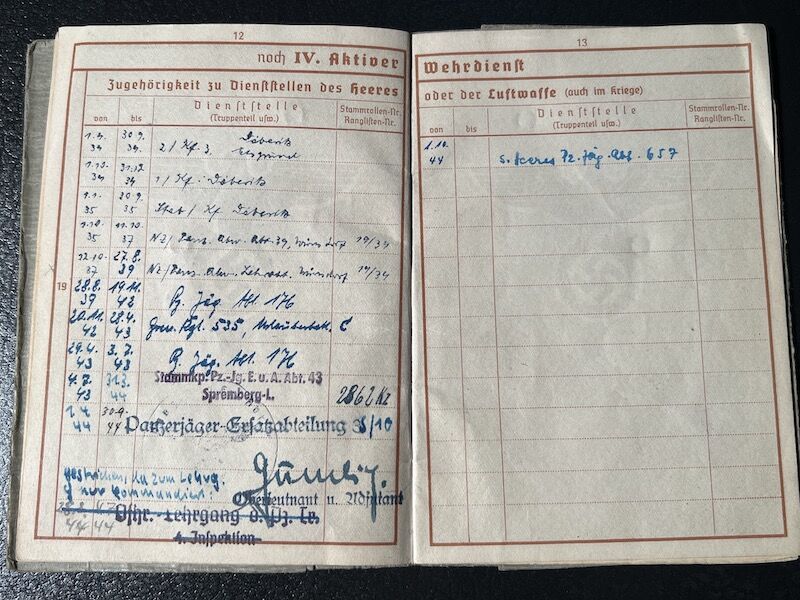 12
noch IV. Aktiver
Zugehörigkeit zu Dienststellen des Heeres
von bis Dienststelle (Truppenteil usw.) Stammrollen-Nr. Ranglisten-Nr.
1.4. 34 30.9. 34 2/Kf. 3. Döberitz Elsgrund
1.10. 34 31.12. 34 1/Kf. Döberitz
1.1. 35 30.9. 35 Stab/Kf. Döberitz
1.10. 35 11.10. 37 Nz/Panz. Abw. Abt. 39, Wünsdorf 19/34
12.10. 37 27.8. 39 Nz/Panz. Abw. Lehrabt. Wünsdorf 19/34
19
28.8. 39 19.11. 42 Pz. Jäg. Abt. 176
20.11. 42 28.4. 43 Gren. Rgt. 535, Urlauberbatl. C
29.4. 43 3.7. 43 Pz. Jäg. Abt. 176
4.7. 43 31.3. 44 Stammkp. Pz.-Jg. E. u. A. Abt. 43
Spremberg-L. 2862 Kz
1.4. 44 30.9. 44 Panzerjäger-Ersatzabteilung 3 5/10
gestrichen, da zum Lehrg.
nur kommandiert:
Oberleutnant u. Adjutant
44 44 Ofhr.-Lehrgang d. Pz. Tr.
4. Inspektion
13
Wehrdienst
oder der Luftwaffe (auch im Kriege)
von bis Dienststelle (Truppenteil usw.) Stammrollen-Nr. Ranglisten-Nr.
1.10. 44 s. Heeres Pz. Jäg. Abt. 657